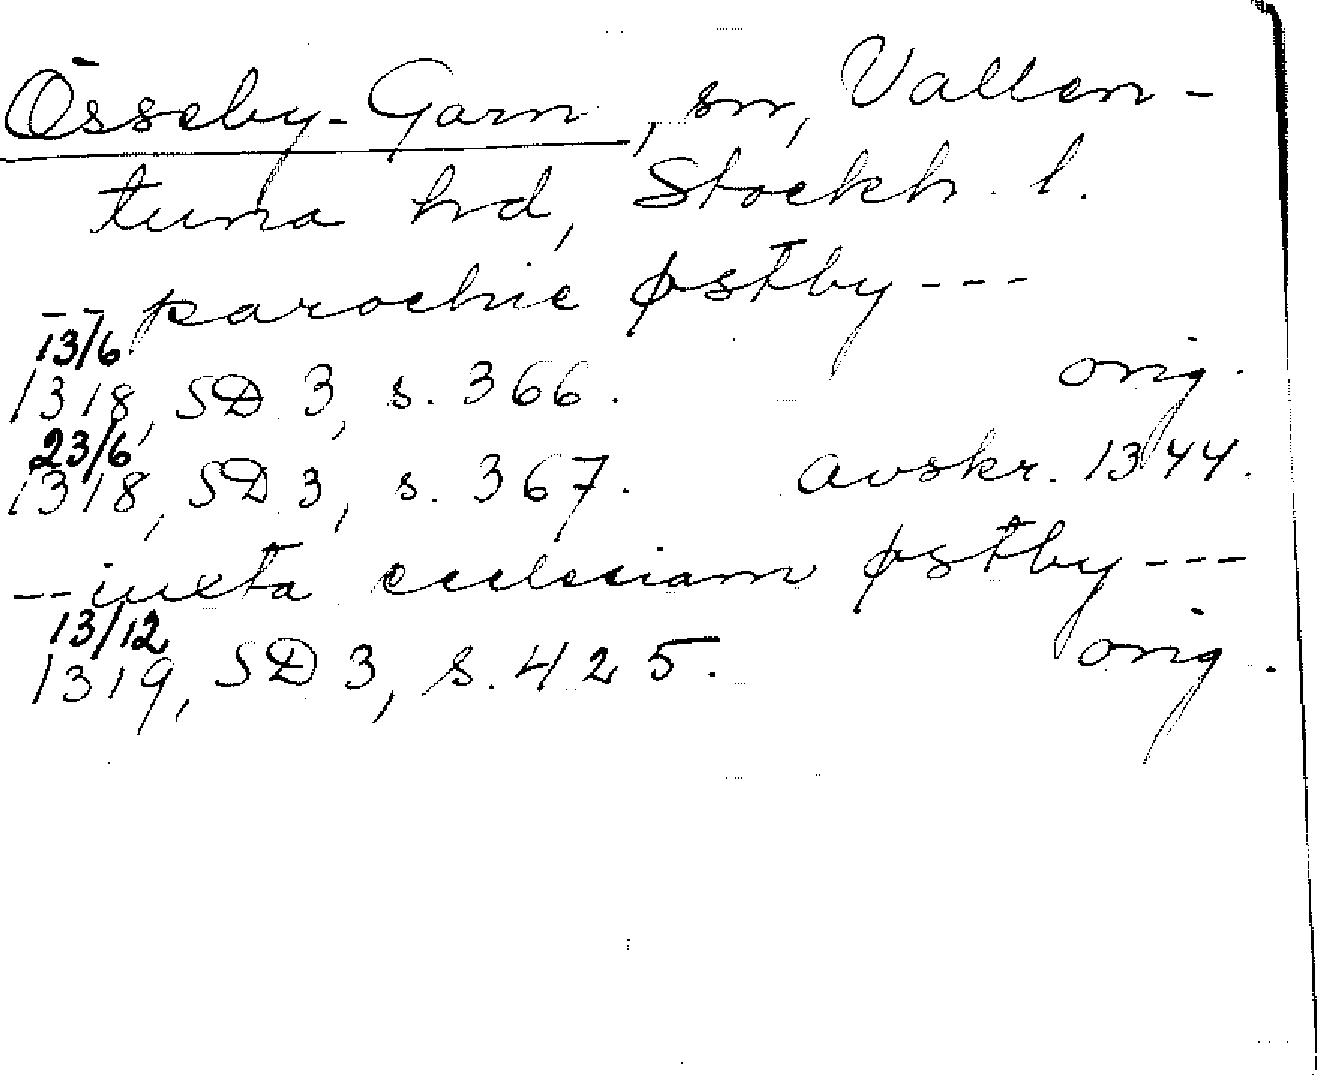 Össeby-Garn, sn, Vallen-
tuna hd, Stockh. l.
-- parochie østby ---
13/6
1318, SD 3, s. 366. orig.
23/6
1318, SD 3, s. 367. avskr. 1344.
-- iuxta ecclesiam østby ---
13/12
1319, SD 3, s. 425. orig.